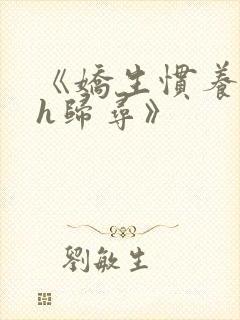 《嬌生慣養
h歸尋》
劉敏生